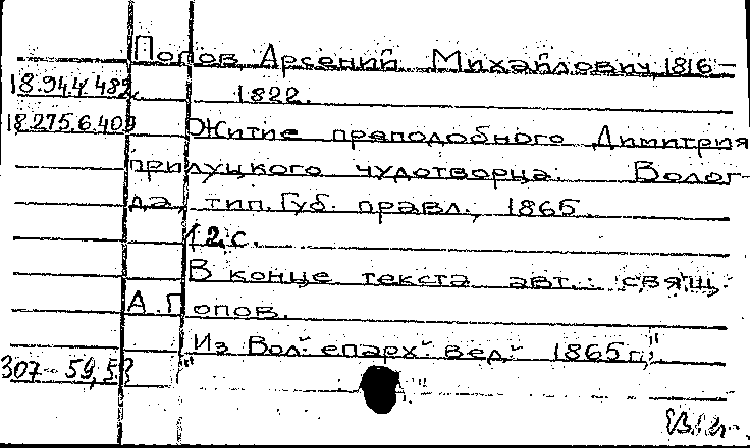 Попов, Арсений Михайлович, 1816-
18.944.482. 1822.
18.275.6.409 Житие преподобного Димитрия
прилуцкого чудотворца. Волог-
да, тип. Губ. правл., 1865.
12 с.
В конце текста авт.: свящ.
А. Попов.
Из "Вол. епарх. вед." 1865 г.,
307-59,53